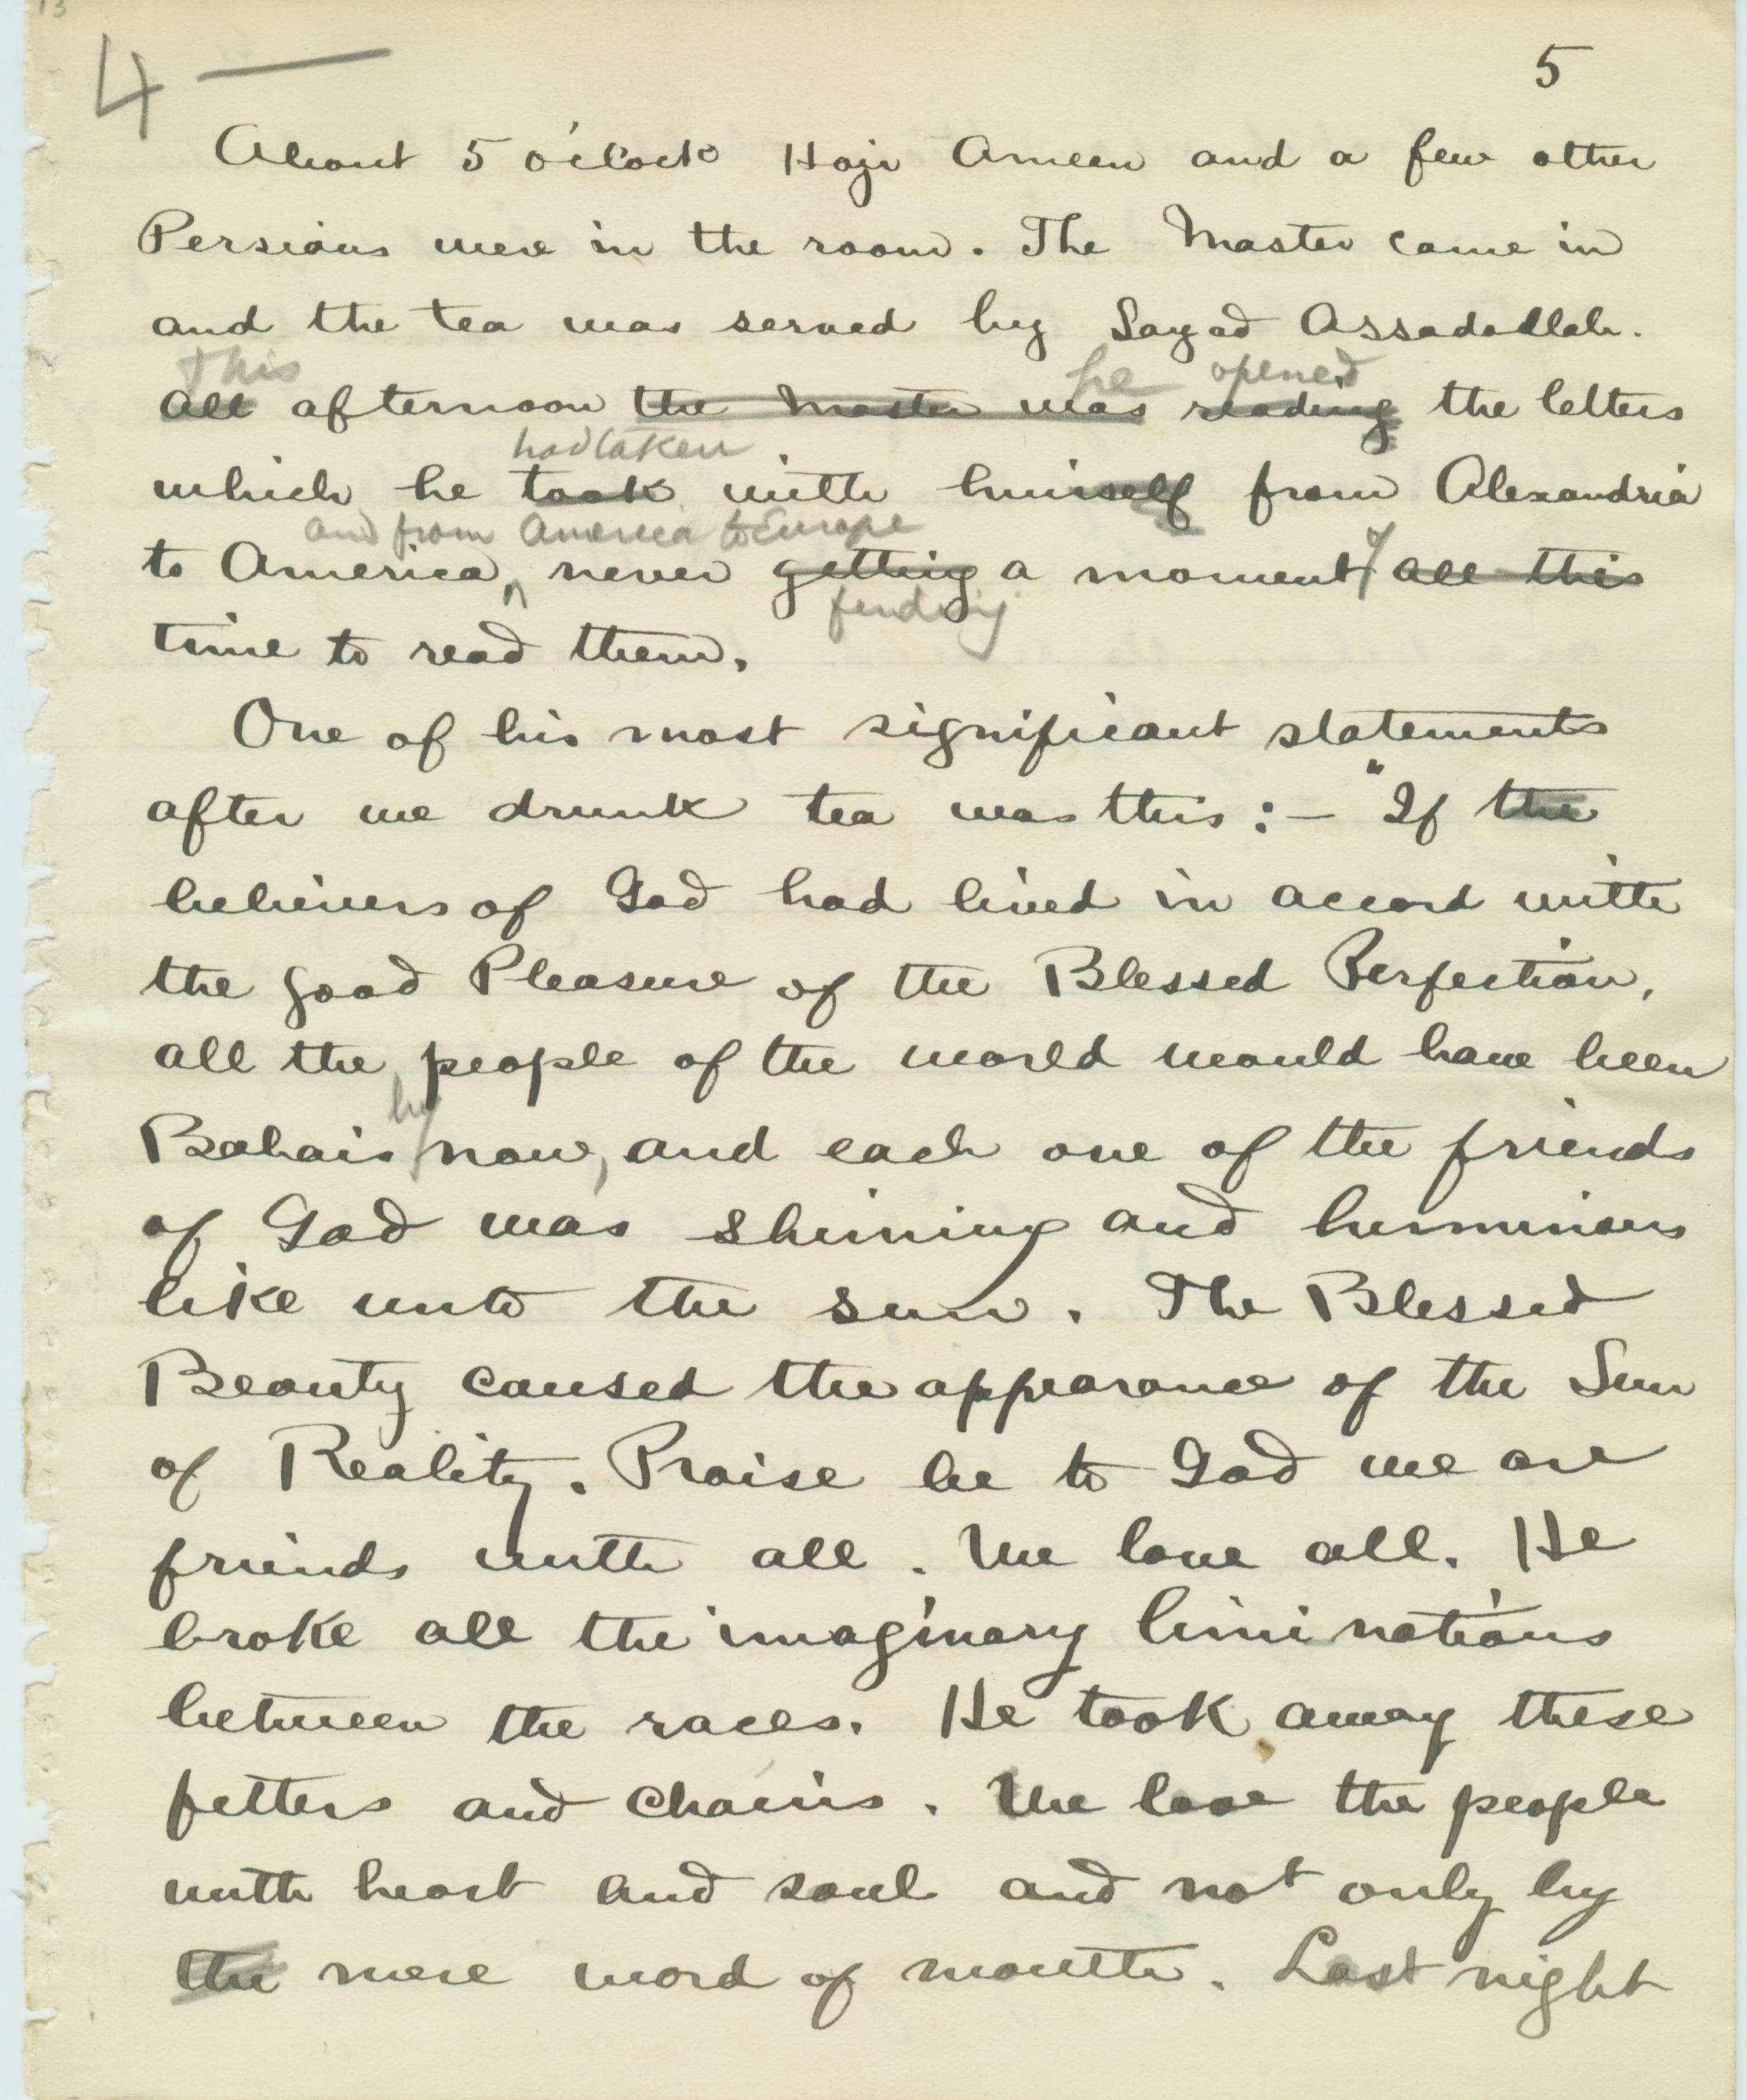 13
4 —
5
About 5 o'clock Haji Ameen and a few other
Persians were in the room. The Master came in
and the tea was served by Sayad Assadollah.
This he opened
All afternoon the Master was reading the letters
had taken
which he took with himself from Alexandria
and from America to Europe
to America, never getting a moment of all this
finding
time to read them.
One of his most significant statements
after we drunk tea was this:— "If the
believers of God had lived in accord with
the good Pleasure of the Blessed Perfection,
all the people of the world would have been
by
Bahais now, and each one of the friends
of God was shining and luminous
like unto the sun. The Blessed
Beauty caused the appearance of the Sun
of Reality. Praise be to God we are
friends with all. We love all. He
broke all the imaginary liminations
between the races. He took away these
fetters and chains. We love the people
with heart and soul and not only by
the mere word of mouth. Last night